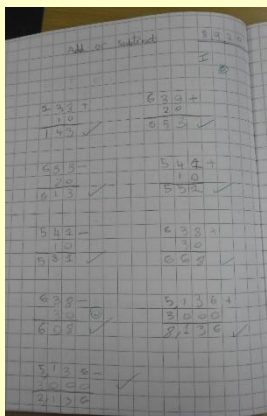 Add or Subtract
133 +
10
143
633 +
20
653
633 -
20
613
542 +
10
552
542 -
10
532
638 +
30
668
638 -
30
608
5136 +
3000
8,136
5136 -
3000
2136